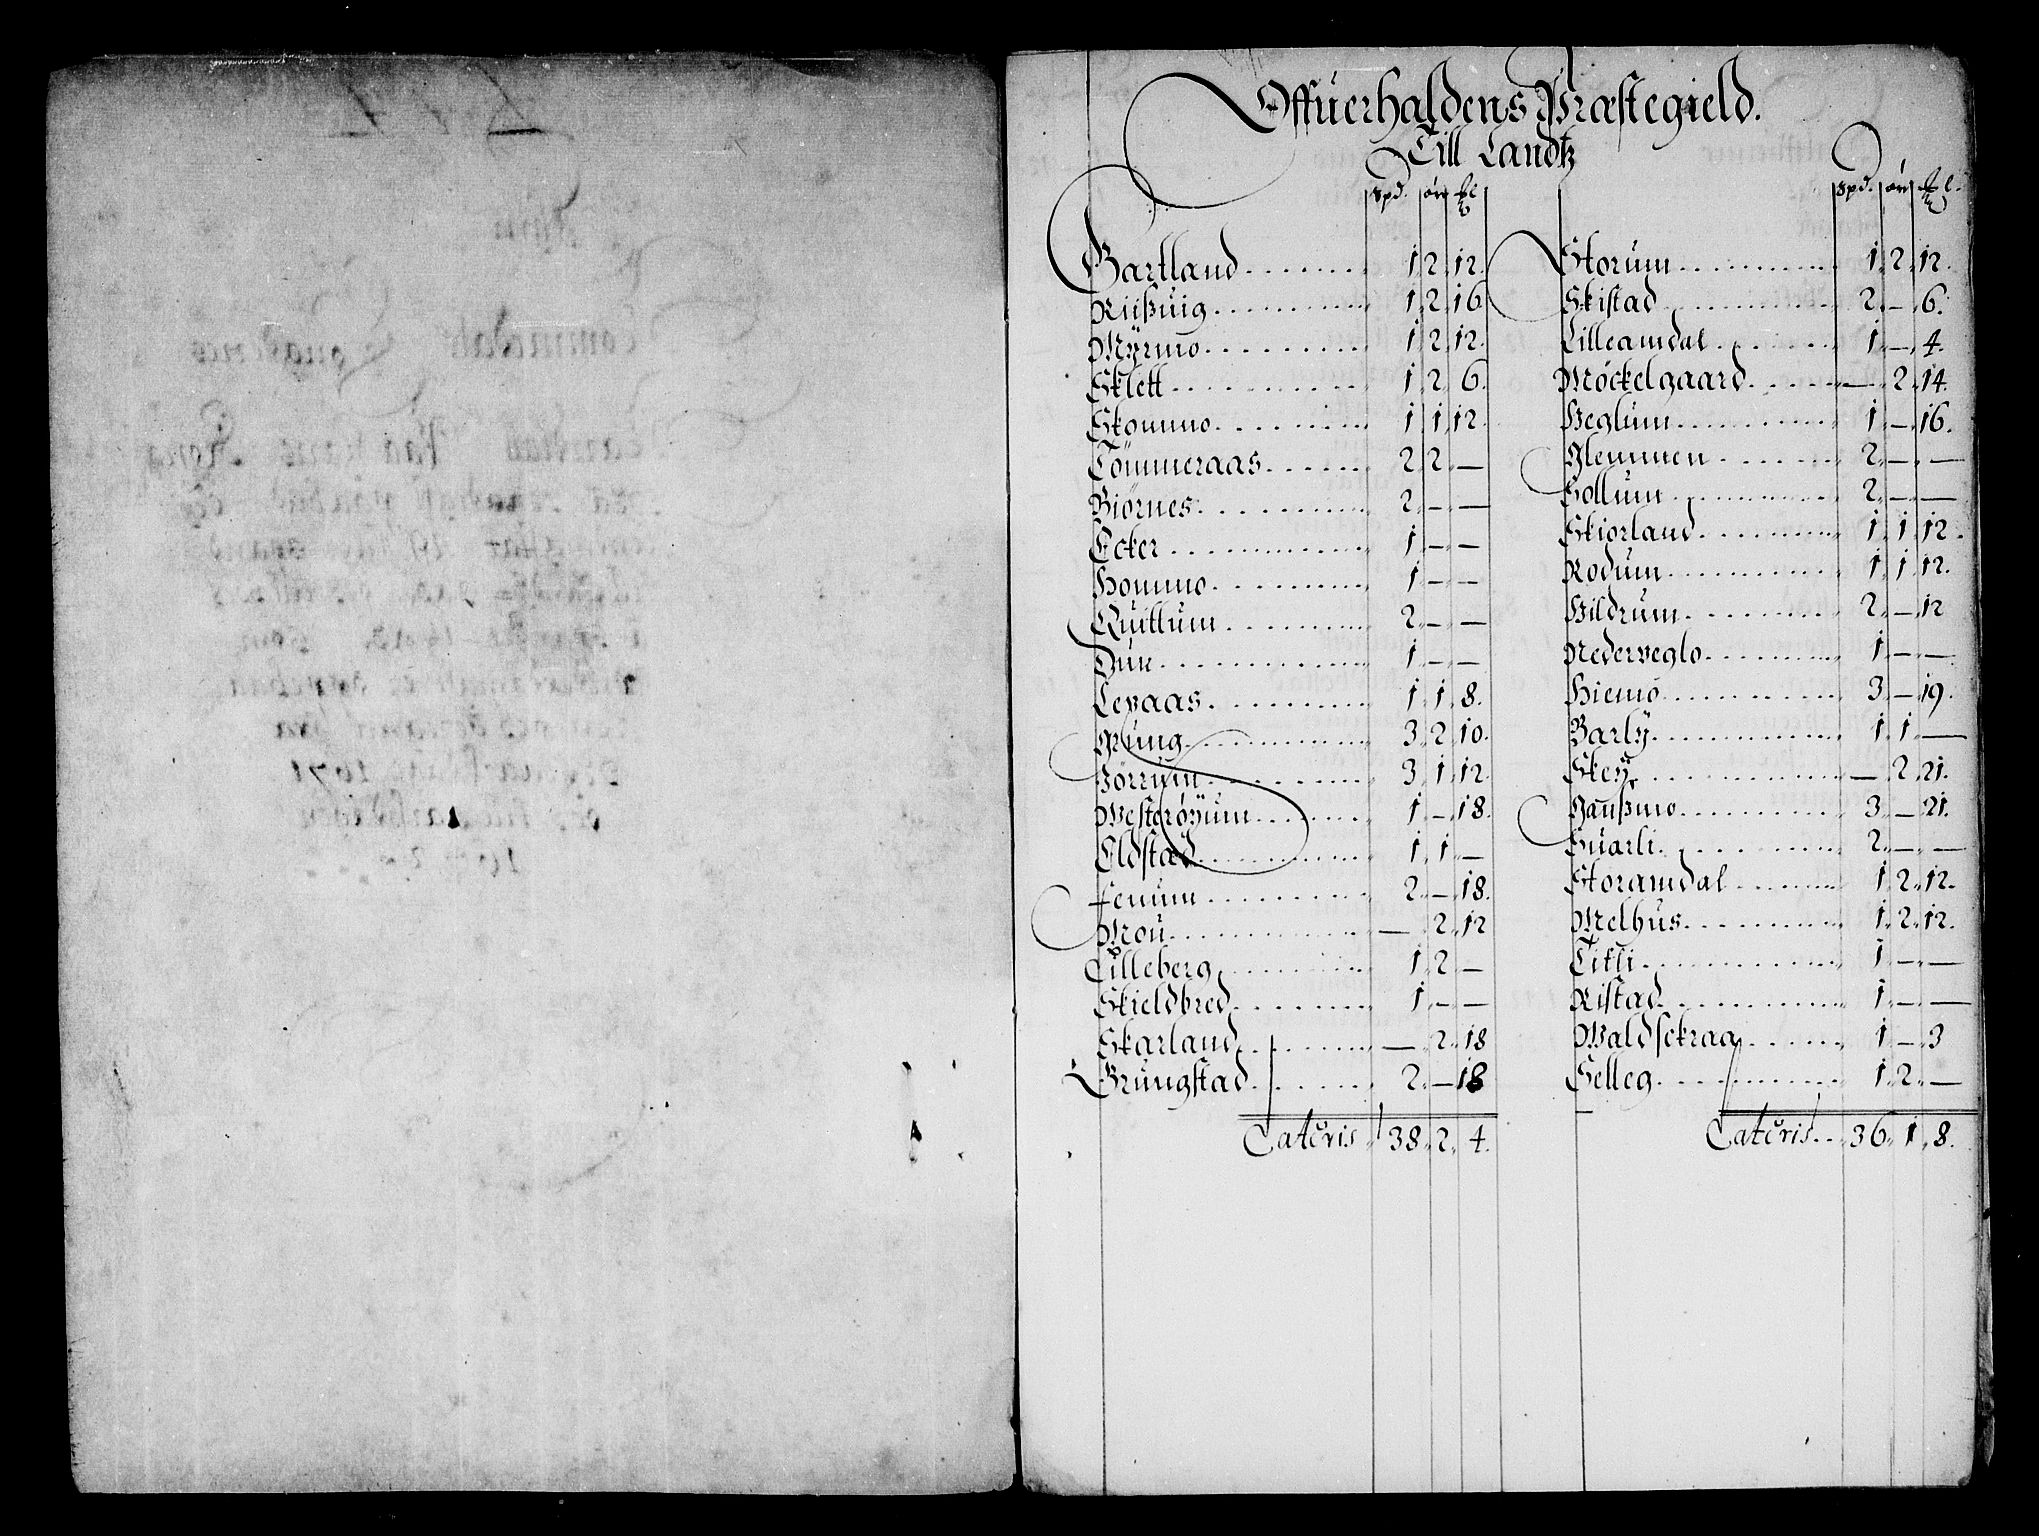 Offuerhaldens Præstegield.
Till Landtz
spd. ør
Gartland 1. 2. 12.
Riißuiig 1. 2. 16
Myrmo 1. 2. 12.
Sklett 1. 2. 6.
Skommo 1. 1. 12.
Tömmeraas 2. 2. —
Biörnes 2. — —
Ecker 1. — —
Hommo 1. — —
Quittum 2. — —
Dun 1. — —
Levaas 1. 1. 8.
Grüng 3. 2. 10.
Jörrüm 3. 1. 12.
Westerøyum 1. — 18.
Eldstad 1. 1. —
Fenum 2. — 18.
Moü — 2. 12
Lilleberg 1. 2. —
Skieldbred 1. — —
Skarland — 2. 18
Grüngstad 2. — 18
Lateris 38. 2. 4.
spd. ør
Storüm 1. 2. 12.
Skistad 2. — 6.
Lilleamdal 1. — 4.
Möckelgaard — 2. 14.
Heglüm 1. — 16.
Glemmen 2. — —
Sollüm 2. — —
Skiorland 1. 1. 12.
Rodüm 1. 1. 12.
Hildrüm 2. — 12
Nederveglo 1. — —
Hiemo 3. — 19.
Barly 1. 1. —
Skey — 2. 21.
Ganßmo 3. — 21.
Süarli 2. — —
Storamdal 1. 2. 12.
Melhüs 1. 2. 12.
Tikli 1. — —
Ristad 1. — —
Waldsckraa 1. — 3
Selleg 1. 2. —
Lateris 36. 1. 8.